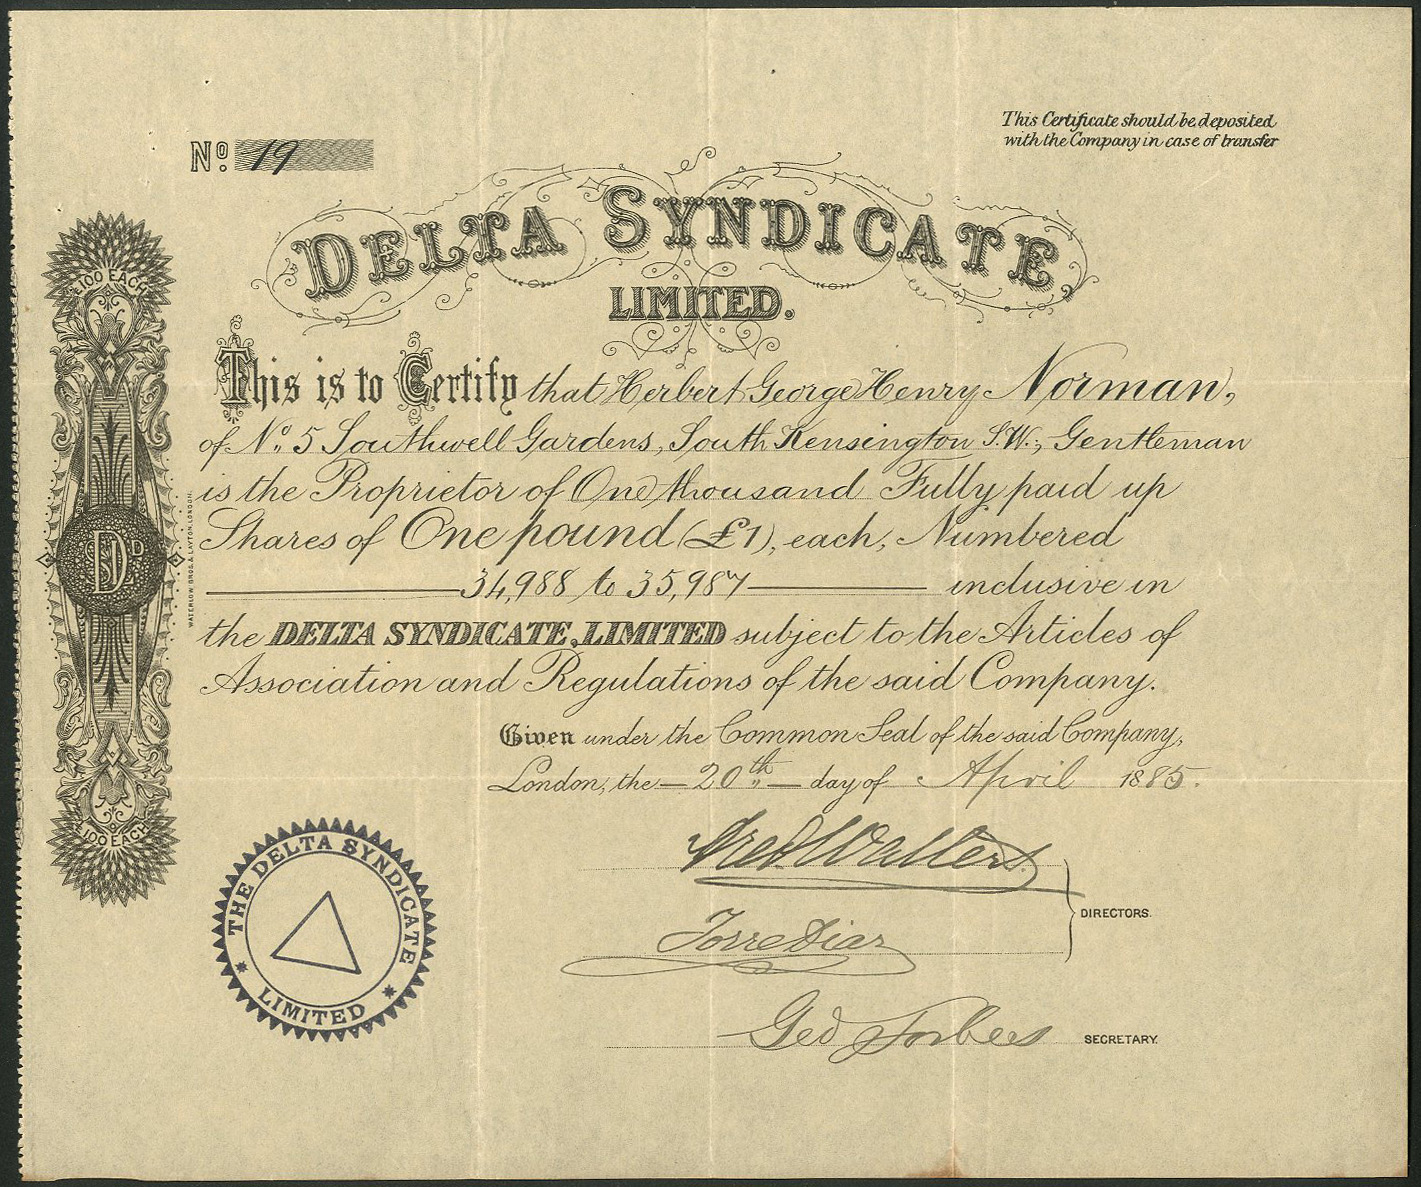 This Certificate should be deposited
with the Company in case of transfer
No. 19
DELTA SYNDICATE,
LIMITED.
This is to Certify that Herbert George Henry Norman,
of No. 5 Southwell Gardens, South Kensington S.W., Gentleman
is the Proprietor of One thousand Fully paid up
Shares of One pound (£1), each, Numbered
34,988 to 35,987 inclusive in
the DELTA SYNDICATE, LIMITED subject to the Articles of
Association and Regulations of the said Company.
Given under the Common Seal of the said Company,
London, the 20th day of April 1885.
Fred Walters
DIRECTORS.
Torre Diaz
Geo Forbes
SECRETARY.
£100 EACH
WATERLOW BROS. & LAYTON, LONDON.
£100 EACH
THE DELTA SYNDICATE
LIMITED